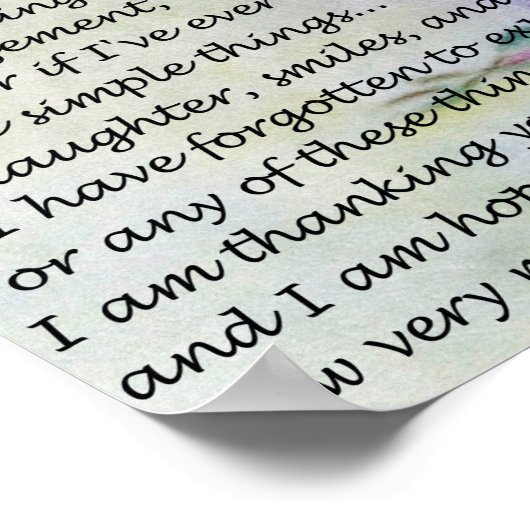 if I've ever
simple things...
laughter, smiles, and
I have forgotten to ex
or any of these thin
I am thanking yo
and I am hop
w very m